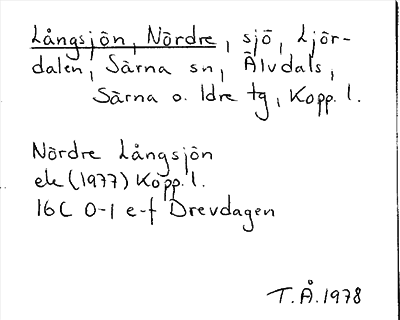 Långsjön, Nördre, sjö, Ljör-
dalen, Särna sn, Älvdals,
Särna o. Idre tg, Kopp. l.
Nördre Långsjön
ek (1977) Kopp. l.
16C 0-1 e-f Drevdagen
T.Å. 1978